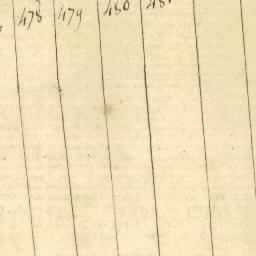 478 479 480 481